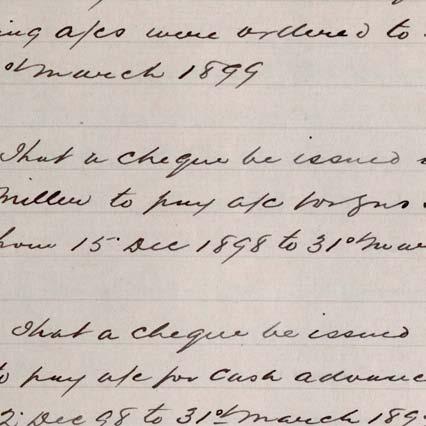 ing a/cs were ordered to
st March 1899
That a cheque be issued
Miller to pay a/c for
from 15 Dec 1898 to 31st Mar
That a cheque be issued
to pay a/c for cash advanc
2 Dec 98 to 31st March 189